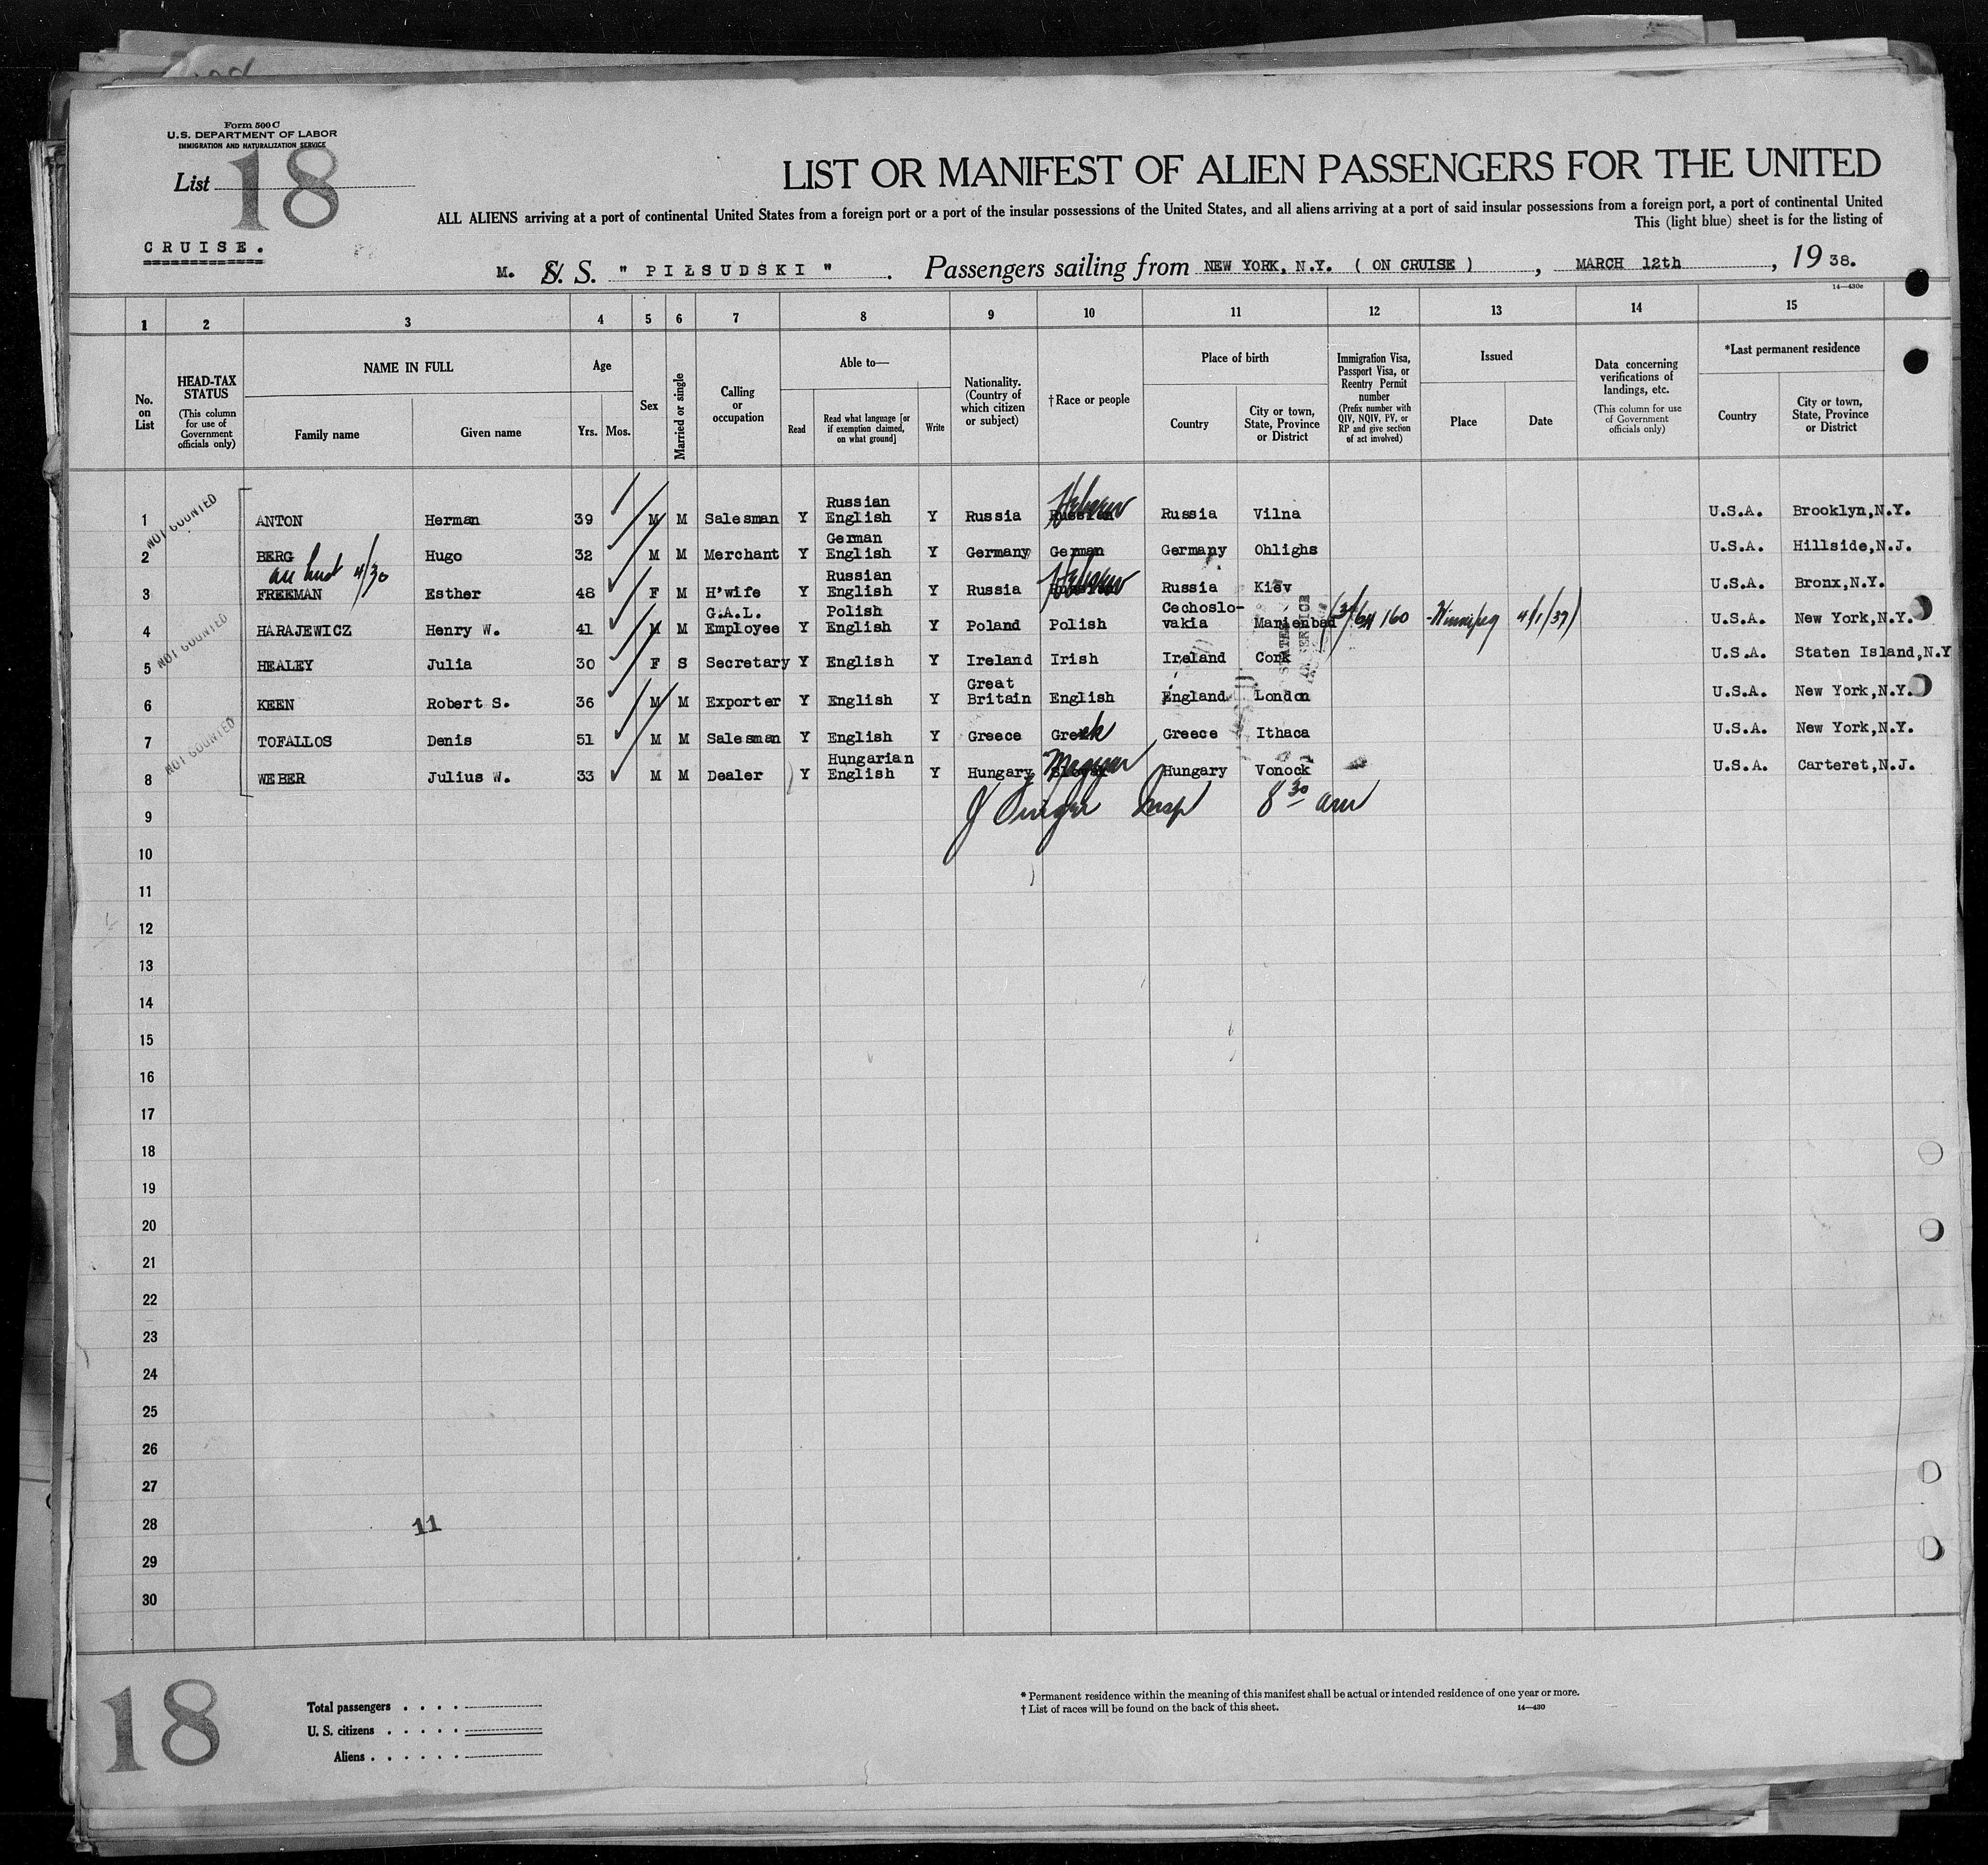 Form 500 C
U.S. DEPARTMENT OF LABOR
IMMIGRATION AND NATURALIZATION SERVICE
List 18
LIST OR MANIFEST OF ALIEN PASSENGERS FOR THE UNITED
ALL ALIENS arriving at a port of continental United States from a foreign port or a port of the insular possessions of the United States, and all aliens arriving at a port of said insular possessions from a foreign port, a port of continental United
This (light blue) sheet is for the listing of
CRUISE.
M. S. S. " PIŁSUDSKI " . Passengers sailing from NEW YORK, N.Y. ( ON CRUISE ) , MARCH 12th , 19 38.
14—430c
1 2 3 4 5 6 7 8 9 10 11 12 13 14 15
No. on List
HEAD-TAX STATUS
(This column for use of Government officials only)
NAME IN FULL
Family name
Given name
Age
Yrs. Mos.
Sex
Married or single
Calling or occupation
Able to—
Read
Read what language [or if exemption claimed, on what ground]
Write
Nationality. (Country of which citizen or subject)
†Race or people
Place of birth
Country
City or town, State, Province or District
Immigration Visa, Passport Visa, or Reentry Permit number
(Prefix number with QIV, NQIV, PV, or RP and give section of act involved)
Issued
Place
Date
Data concerning verifications of landings, etc.
(This column for use of Government officials only)
*Last permanent residence
Country
City or town, State, Province or District
NOT COUNTED
1 ANTON Herman 39 M M Salesman Y Russian English Y Russia Russian Hebrew Russia Vilna U.S.A. Brooklyn,N.Y.
2 BERG Hugo 32 M M Merchant Y German English Y Germany German Germany Ohlighs U.S.A. Hillside,N.J.
4/30
3 FREEMAN Esther 48 F M H'wife Y Russian English Y Russia Hebrew Russia Kiev U.S.A. Bronx,N.Y.
NOT COUNTED
4 HARAJEWICZ Henry W. 41 M M G.A.L. Employee Y Polish English Y Poland Polish Cechoslo-vakia Marienbad 160 Winnipeg 4/1/37) U.S.A. New York,N.Y.
5 HEALEY Julia 30 F S Secretary Y English Y Ireland Irish Ireland Cork U.S.A. Staten Island,N.Y
6 KEEN Robert S. 36 M M Exporter Y English Y Great Britain English England London U.S.A. New York,N.Y.
NOT COUNTED
7 TOFALLOS Denis 51 M M Salesman Y English Y Greece Greek Greece Ithaca U.S.A. New York,N.Y.
8 WEBER Julius W. 33 M M Dealer Y Hungarian English Y Hungary Magyar Hungary Vonock U.S.A. Carteret,N.J.
9 Insp 8 30 am
10
11
12
13
14
15
16
17
18
19
20
21
22
23
24
25
26
27
28 11
29
30
18
Total passengers . . . .
U. S. citizens . . . . .
Aliens . . . . . .
* Permanent residence within the meaning of this manifest shall be actual or intended residence of one year or more.
† List of races will be found on the back of this sheet.
14—430